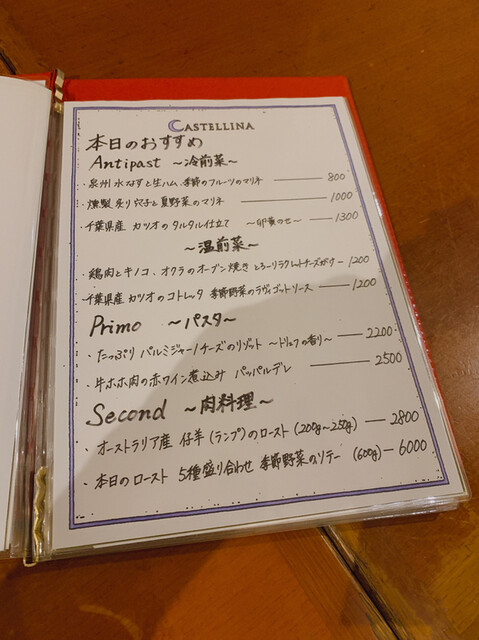 CASTELLINA
本日のおすすめ
Antipast 〜冷前菜〜
・泉州 水なすと生ハム、季節のフルーツのマリネ ― 800
・燻製 炙り穴子と夏野菜のマリネ ― 1000
・千葉県産 カツオのタルタル仕立て 〜卵黄のせ〜 ― 1300
〜温前菜〜
・鶏肉とキノコ、オクラのオーブン焼き とろーりラクレットチーズがけ ― 1200
・千葉県産 カツオのコトレッタ 季節野菜のラヴィゴットソース ― 1200
Primo 〜パスタ〜
・たっぷり パルミジャーノチーズのリゾット 〜トリュフの香り〜 ― 2200
・牛ホホ肉の赤ワイン煮込み パッパルデレ ― 2500
Second 〜肉料理〜
・オーストラリア産 仔羊(ランプ)のロースト (200g〜250g) ― 2800
・本日のロースト 5種盛り合わせ 季節野菜のソテー (600g) ― 6000